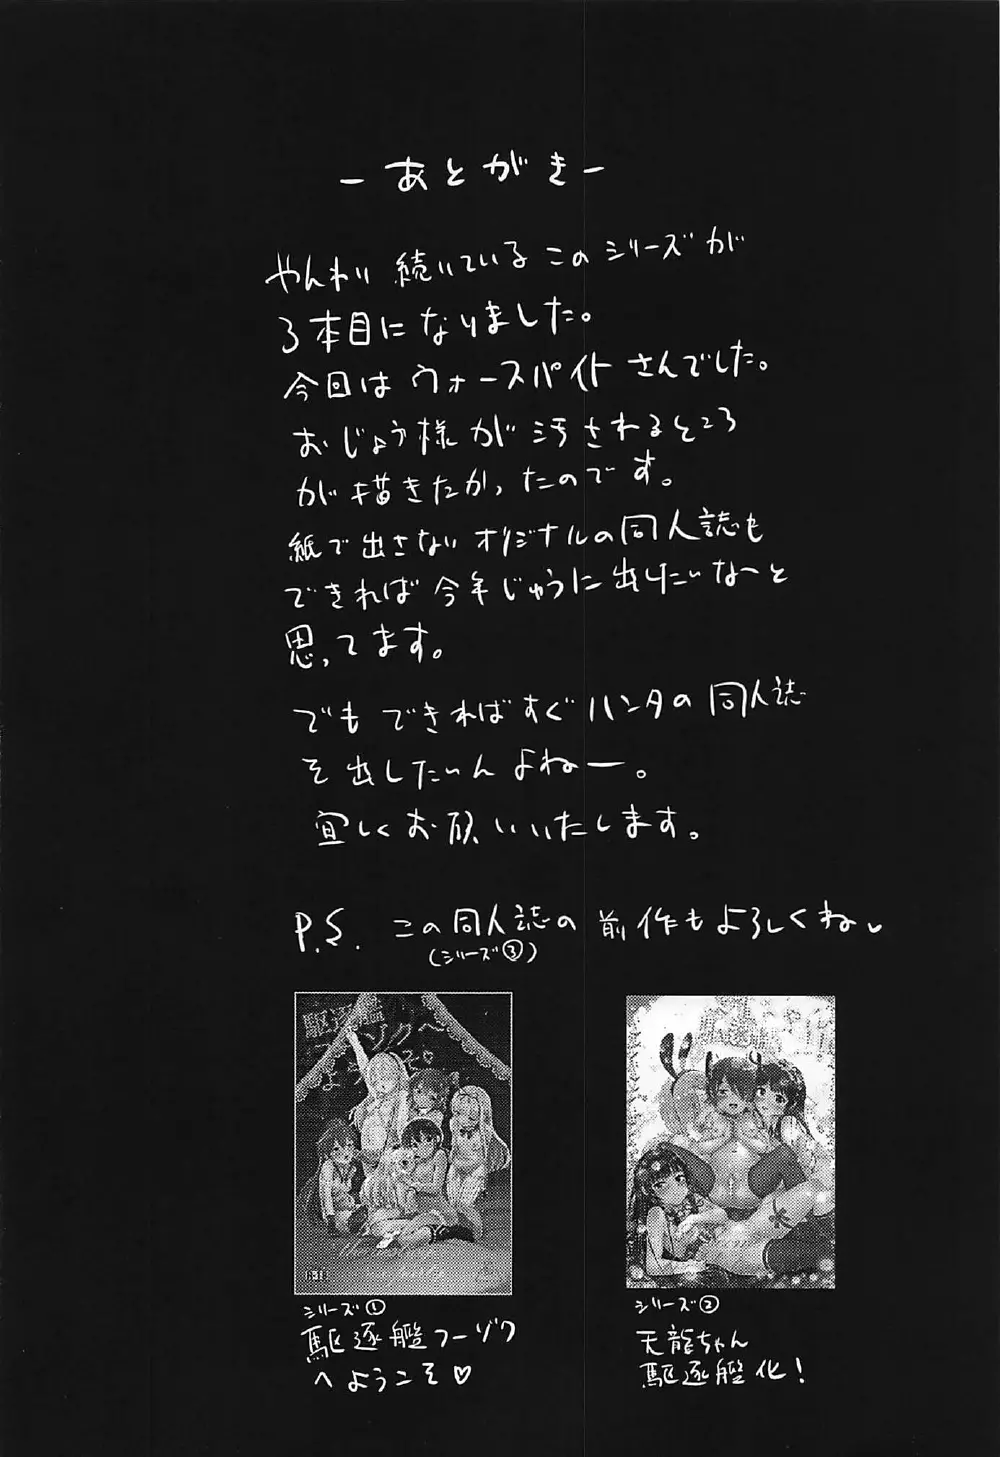 ーあとがきー
やんわり続いているこのシリーズが
3本目になりました。
今回はウォースパイトさんでした。
おじょう様が汚されるところ
が描きたかったのです。
紙で出さないオリジナルの同人誌も
できれば今年じゅうに出したいなーと
思ってます。
でもできればすぐハンタの同人誌
を出したいんよねー。
宜しくお願いいたします。
P.S. この同人誌の前作もよろしくね
(シリーズ③)
駆逐艦
フーゾクへ
ようこそ
シリーズ①
駆逐艦フーゾク
へようこそ♡
シリーズ②
天龍ちゃん
駆逐艦化!